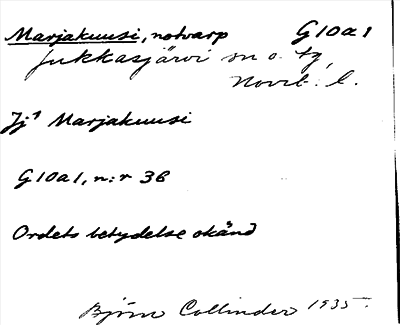 Marjakuusi, notvarp G10a1
Jukkasjärvi sn o. tg,
Norrb. l.
Jj:1 Marjakuusi
G10a1, n:r 38
Ordets betydelse okänd
Björn Collinder 1935.